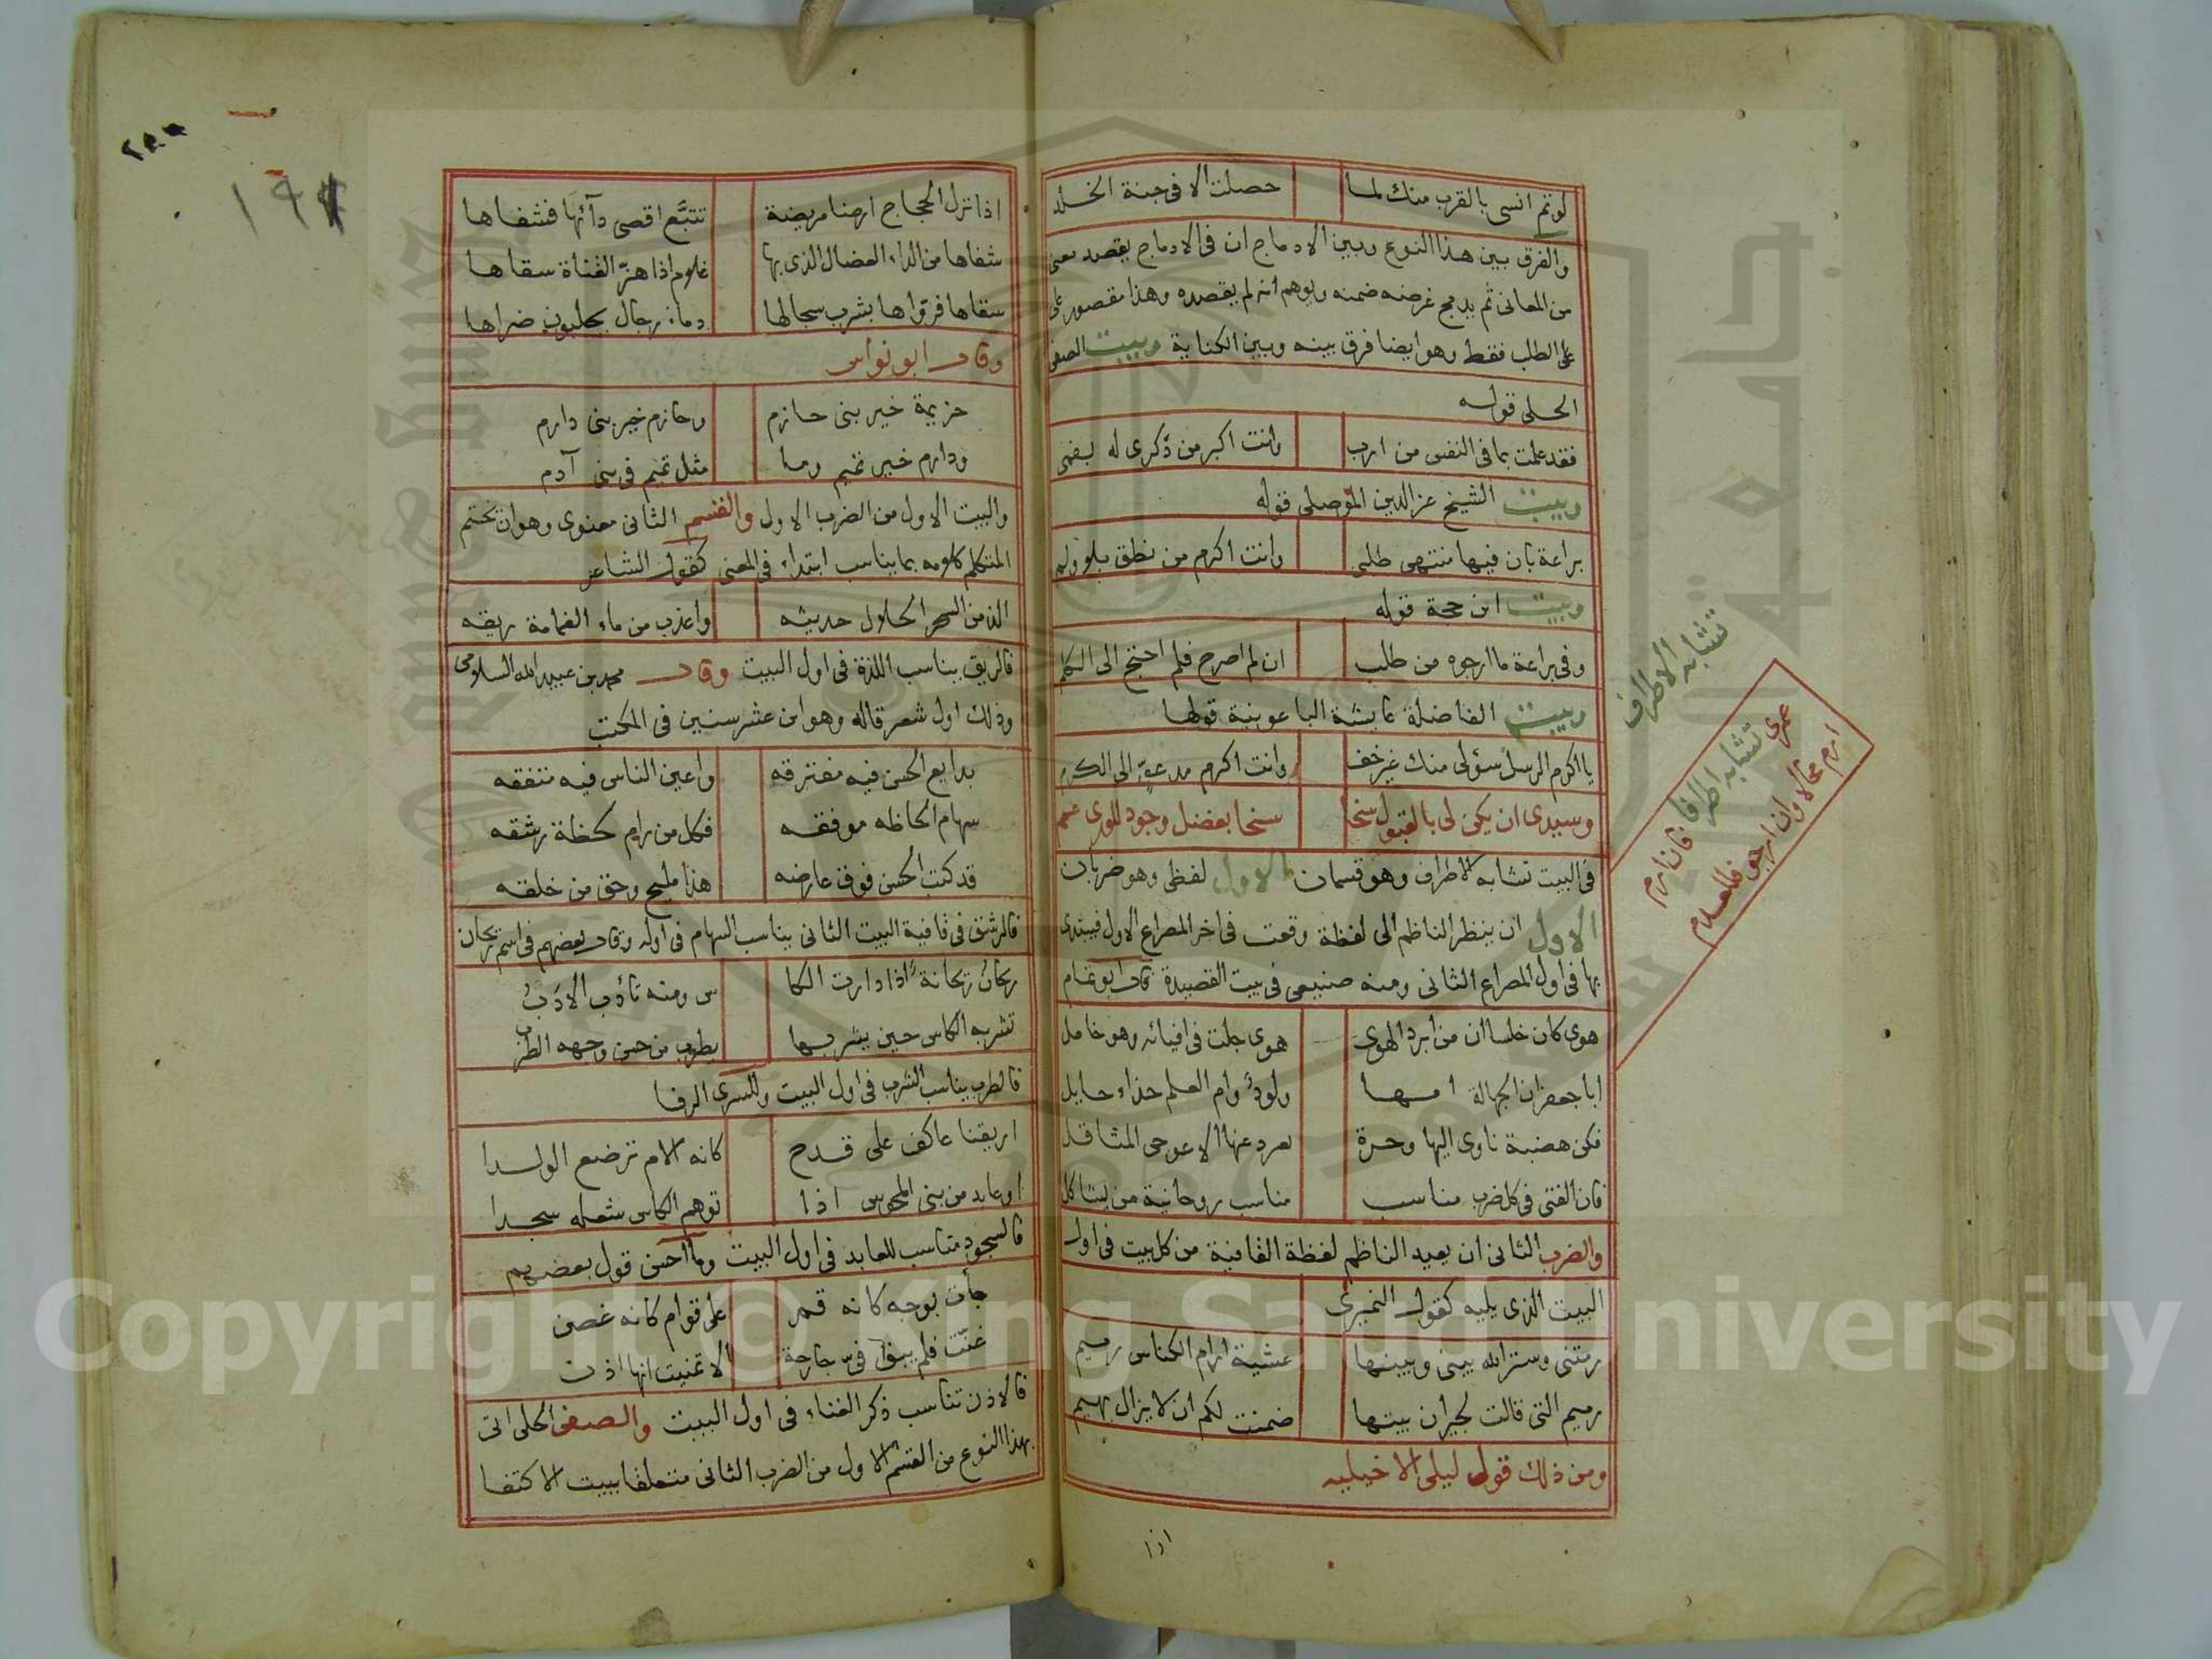 لو تم انسى بالقرب منك لما حصلت الا فى جنة الخلد
والفرق بين هذا النوع وبين الادماج ان فى الادماج يقصد معنى
من المعانى ثم يدمج غرضه ضمنه ويوهم انه لم يقصده وهذا مقصور على
على الطلب فقط وهو ايضا فرق بينه وبين الكناية وبيت الصفى
الحلى قوله
فقد علمت بما فى النفس من ارب وانت اكبر من ذكرى له بفمى
وبيت الشيخ عز الدين الموصلى قوله
براعة بان فيها منتهى طلبى وانت اكرم من نطق بلا ولم
وبيت ابن حجة قوله
وفى براعة ما ارجوه من طلب ان لم اصرح فلم احتج الى الكلم
وبيت الفاضلة عايشة الباعونية قولها
يا اكرم الرسل سؤلى منك غير خف وانت اكرم مدعو الى الكرم
وسيدى ان يكن لى بالقبول سخا سخا بفضل وجود للورى عمم
فى البيت تشابه الاطراف وهو قسمان الاول لفظى وهو ضربان
الاول ان ينظر الناظم الى لفظة وقعت فى اخر المصراع الاول فيبتدى
بها فى اول المصراع الثانى ومنه صنيعى فى بيت القصيدة قال ابو تمام
هوى كان خلسا ان من ابرد الهوى هوى جلت فى افيائه وهو خامل
ابا جعفر ان الجهالة امها ولود وام العلم حذاء حايل
فكن هضبة ناوى اليها وحرة يعرد عنها الاعوجى المناقل
فان الفتى فى كل ضرب مناسب مناسب روحانية من يشاكل
والضرب الثانى ان يعيد الناظم لفظة القافية من كل بيت فى اول
البيت الذى يليه كقول النميرى
رمتنى وستر الله بينى وبينها عشية ارام الكناس رميم
رميم التى قالت لجيران بيتها ضمنت لكم ان لا يزال يهيم
ومن ذلك قول ليلى الاخيليه
اذا
تشابه الاطراف
عمرى تشابه اطرافا فان ارم
ارم محالا وان ارجو فللعدم
١٩٨
اذا نزل الحجاج ارضا مريضة تتبع اقصى دآئها فشفاها
شفاها من الداء العضال الذى بها غلام اذا هز القناة سقاها
سقاها فرواها بشرب سجالها دماء رجال يحلبون ضراها
وقال ابو نواس
خزيمة خير بنى حازم وحازم خير بنى دارم
ودارم خير تميم وما مثل تميم فى بنى آدم
والبيت الاول من الضرب الاول والقسم الثانى معنوى وهو ان يختم
المتكلم كلامه بما يناسب ابتداء فى المعنى كقول الشاعر
الذ من السحر الحلال حديثه واعذب من ماء الغمامة ريقه
فالريق يناسب اللذة فى اول البيت وقال محمد بن عبيد الله السلامى
وذلك اول شعر قاله وهو ابن عشر سنين فى المكتب
بدايع الحسن فيه مفترقه واعين الناس فيه متفقه
سهام الحاظه موفقه فكل من رام لحظة رشقه
قد كتب الحسن فوق عارضه هذا مليح وحق من خلقه
فالرشق فى قافية البيت الثانى يناسب السهام فى اوله وقال بعضهم فى اسم ريحان
ريحان ريحانة اذا دارت الكا س ومنه تأدب الادب
تشربه الكاس حين يشربها يطرب من حسن وجهه الطرب
فالطرب يناسب الشرب فى اول البيت وللسرى الرفا
ابريقنا عاكف على قدح كانه الام ترضع الولدا
او عابد من بنى المجوس اذا توهم الكاس شعلة سجدا
فالسجود مناسب للعابد فى اول البيت وما احسن قول بعضهم
جأت بوجه كانه قمر على قوام كانه غصن
غنت فلم يبق فى جارحة الا تمنيت انها اذن
فالاذن تناسب ذكر الغناء فى اول البيت والصفى الحلى اتى
بهذا النوع من القسم الاول من الضرب الثانى متعلقا ببيت الاكتفا
Copyright © King Saud University